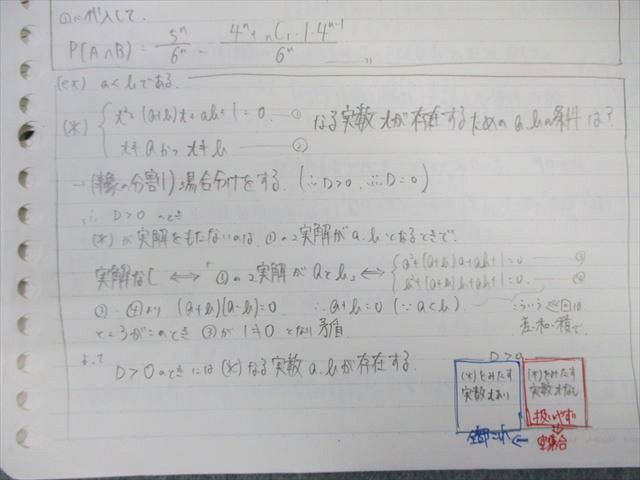 ①に代入して.
P(A∩B) = 5^n/6^n - (4^n + nC1・1・4^{n-1})/6^n 〃
(ex) a<bである.
(*) { x²+(a+b)x+ab+1=0. ―①
x≠aかつx≠b ―②
なる実数xが存在するためのa.bの条件は?
→ (対象の分割!) 場合分けをする. (∴D>0. ∴D=0)
D>0のとき
(*)が実解をもたないのは. ①の2実解がa.bとなるときで.
実解なし ⟺ 「①の2実解がaとb」 ⟺ { a²+(a+b)a+ab+1=0 ―③
b²+(a+b)b+ab+1=0 ―④
③-④より (a+b)(a-b)=0 ∴a+b=0 (∵a<b)
こういう
ところがこのとき③が1≠0となり矛盾.
差・和・積で.
よって
D>0のときには(*)なる実数a.bが存在する.
D>0
(*)をみたす
実数xあり
(*)をみたす
実数xなし
扱いやすい
全部コレ ← 空集合